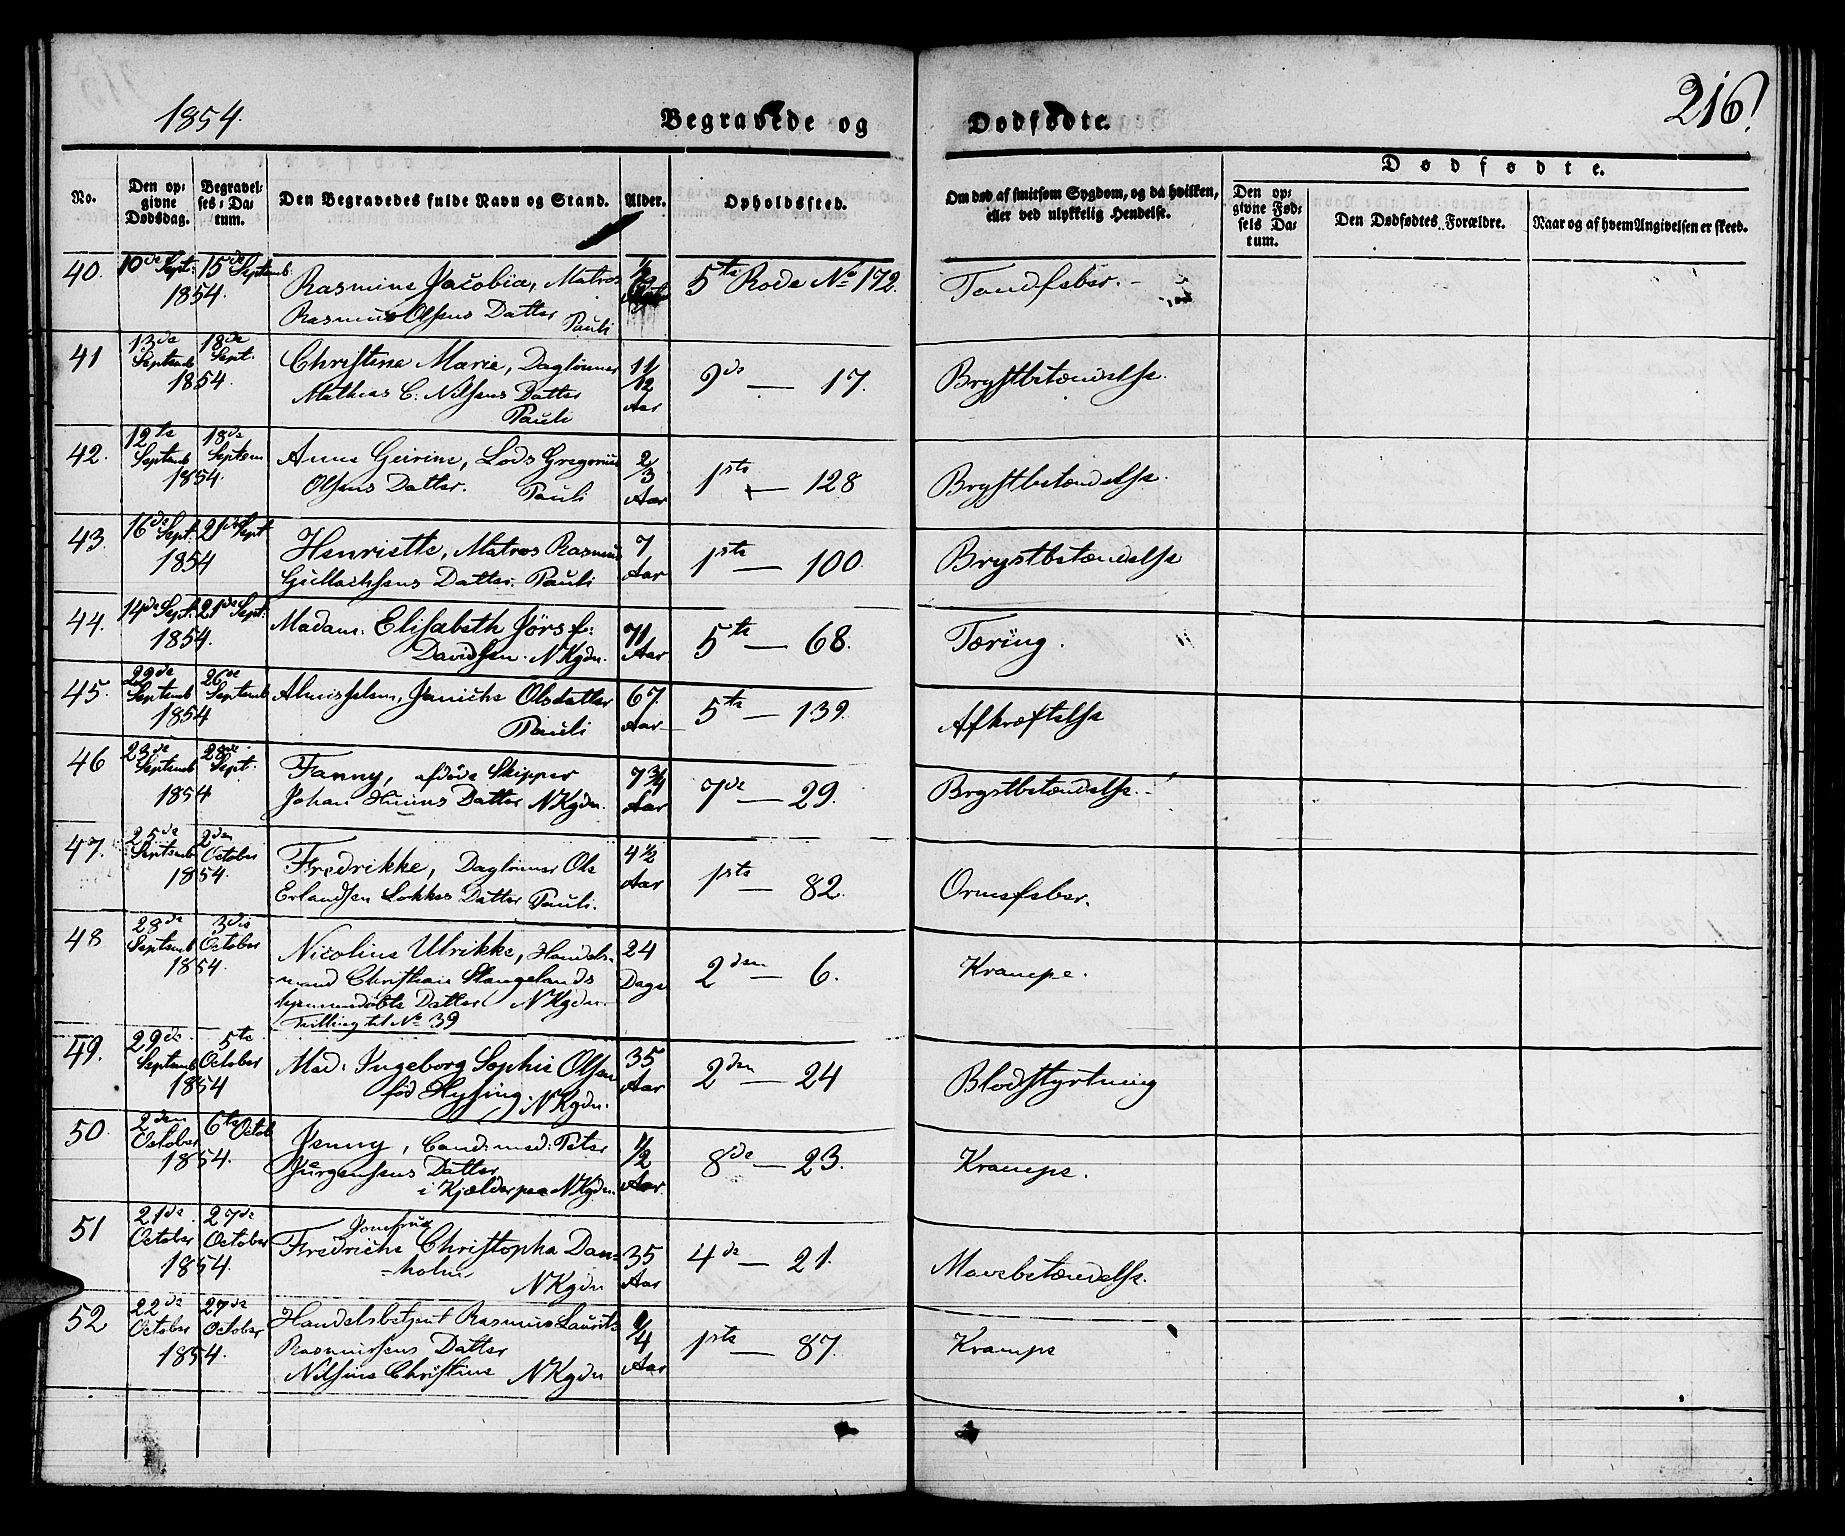 1854.
Begravede og Dødfødte.
216!
No.
Den opgivne Dødsdag.
Begravelses-Datum.
Den Begravedes fulde Navn og Stand.
Alder.
Opholdssted.
Om død af smitsom Sygdom, og da hvilken, eller ved ulykkelig Hendelse.
Dødfødte.
Den opgivne Fødsels Datum.
Den Dødfødtes Forældre.
Naar og af hvem Angivelsen er skeed.
40. 10de Sept: 15de Septemb: Rasmine Jacobia, Matros 1/2 5te Rode No 172. Tandfeber.
1854. Rasmus Olsens Datter Pauli
41 13de Septemb 18de Sept. Christine Marie, Daglønner 11/12 Aar 9de — 17. Brystbetændelse.
1854. Mathias C. Nilsens Datter
Pauli
42. 12te Septemb 18de Septem Anne Geirine, Lods Gregorius 2/3 Aar 1ste — 128 Brystbetændelse.
1854. Olsens Datter. Pauli
43. 16de Sept. 21de Sept Henriette, Matros Rasmus 7 Aar 1ste — 100. Brystbetændelse
1854 Gullachsens Datter. Pauli
44. 14de Sept. 21de Sept: Madam: Elisabeth Jørs f: 71 Aar 5te — 68. Tæring.
1854. Davidsen. NKgdn.
45. 22de Septemb 26de Septemb Almisselem, Janiche Olsdatter 67. Aar 5te — 139. Afkræftelse
1854 Pauli
46 23de Septemb 28de Sept. Fanny, afdøde Skipper 7 3/4 Aar 7de — 29. Brystbetændelse.
1854 Johan Datter NKgdn.
47. 25de Septemb 2den October Fredrikke, Daglønner Ole 4 1/2 Aar 1ste — 82. Ormefeber.
1854. Erlandsen Lokkes Datter Pauli.
48 28de Septemb 3die October Nicoline Ulrikke, Handels- 24 Dage 2den — 6. Krampe.
1854. -mand Christian Stangelands
hjemmedøbte Datter NKgdn.
Tvilling til No 39
49. 29de Septemb 5te October Mad: Ingeborg Sophie Olsen 35 Aar 2den — 24 Blodstyrtning
1854 fød Hysing. NKgdn.
50. 2den October 6te Octob Jenny, Cand: med: Peter 1/2 Aar 8de — 23. Krampe.
1854. Jürgensens Datter
i Kjælder paa NKgdn.
51 21de October 27de October Jomfrue
Fredriche Christopha Dan- 35 Aar 4de — 21. Mavebetændelse.
1854. =holm, NKgdn
52 22de October 27de October Handelsbetjent Rasmus Laurits 1/4 Aar 1ste — 87. Krampe
1854. Rasmussens Datter
Nilsine Christine NKgdn